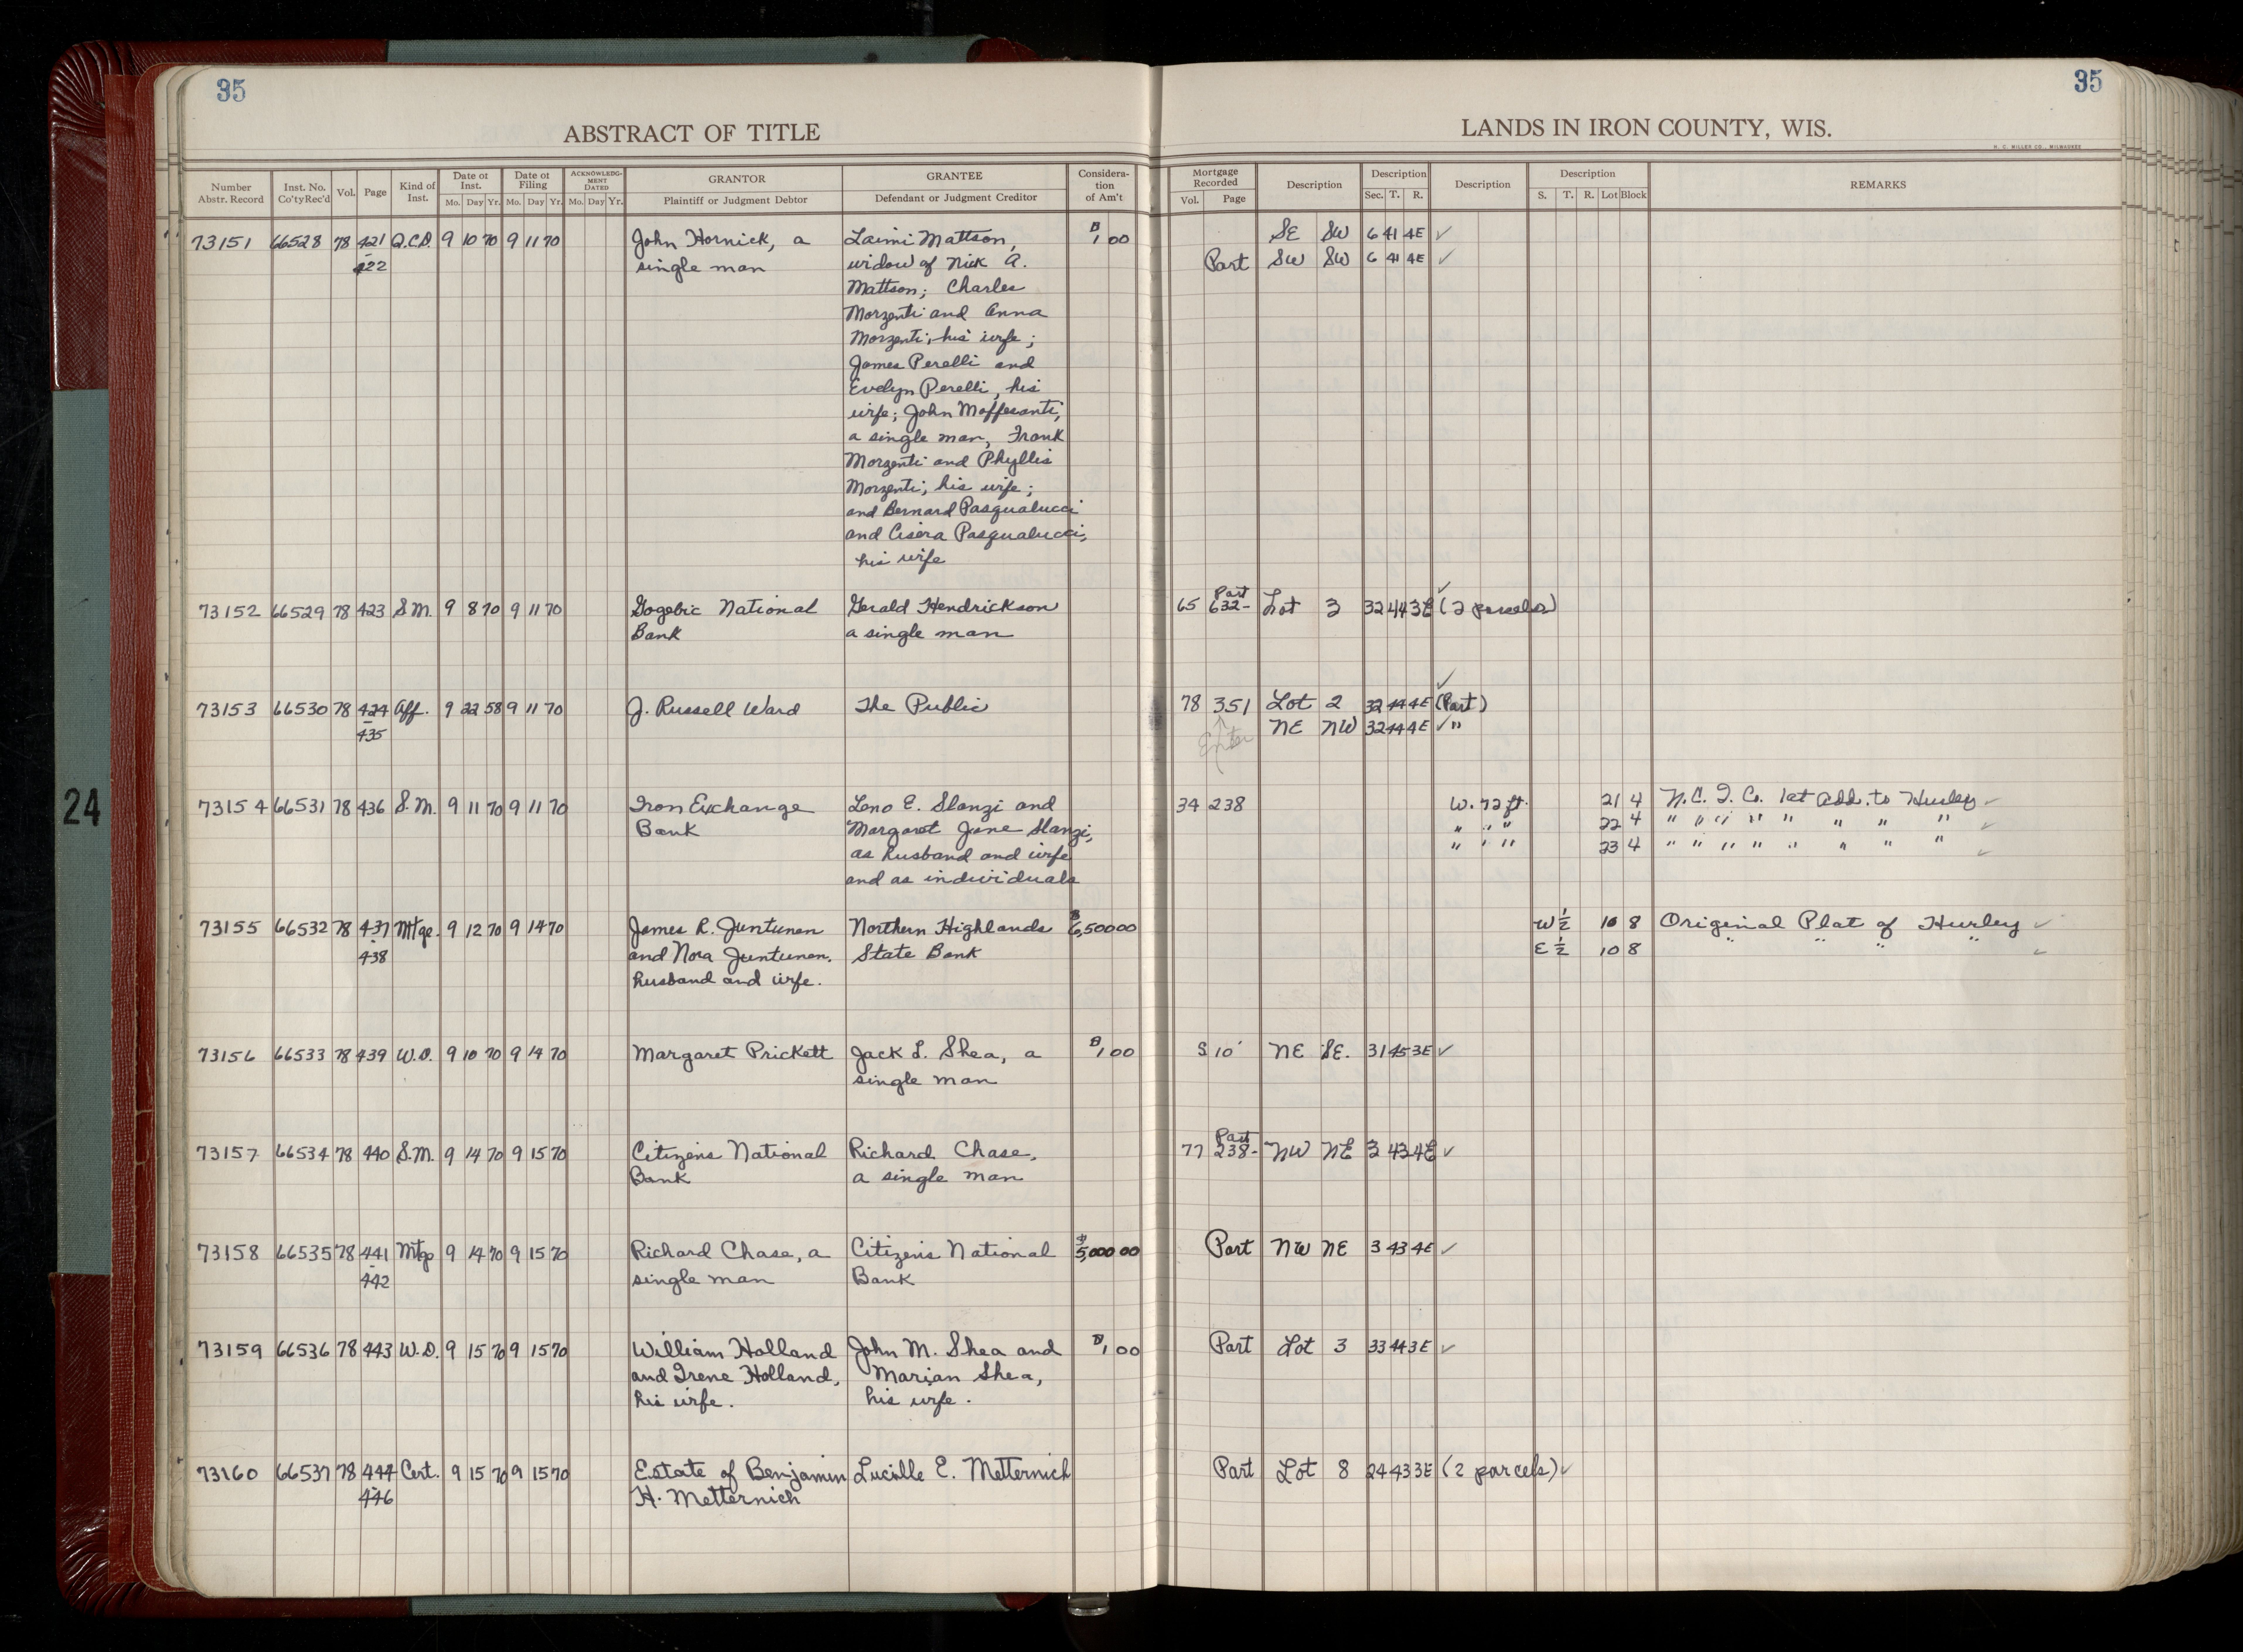 35
35
ABSTRACT OF TITLE
LANDS IN IRON COUNTY, WIS.
H. C. MILLER CO., MILWAUKEE
Number Abstr. Record | Inst. No. Co'ty Rec'd | Vol. | Page | Kind of Inst. | Date of Inst. Mo. Day Yr. | Date of Filing Mo. Day Yr. | ACKNOWLEDGMENT DATED Mo. Day Yr. | GRANTOR Plaintiff or Judgment Debtor | GRANTEE Defendant or Judgment Creditor | Consideration of Am't | Mortgage Recorded Vol. Page | Description | Description Sec. T. R. | Description | Description S. T. R. Lot Block | REMARKS
73151 66528 78 421 Q.C.D. 9 10 70 9 11 70 John Hornick, a Laimi Mattson, $1 00 SE SW 6 41 4E ✓
-422 single man widow of Nick A. Part SW SW 6 41 4E ✓
Mattson; Charles
Morzenti and Anna
Morzenti, his wife;
James Perelli and
Evelyn Perelli, his
wife; John Maffesanti,
a single man, Frank
Morzenti and Phyllis
Morzenti, his wife;
and Bernard Pasqualucci
and Cisera Pasqualucci,
his wife
73152 66529 78 423 S.M. 9 8 70 9 11 70 Gogebic National Gerald Hendrickson 65 632- Part Lot 3 32 44 3E (2 parcels) ✓
Bank a single man
73153 66530 78 424 Aff. 9 22 58 9 11 70 J. Russell Ward The Public 78 351 Lot 2 32 44 4E (Part) ✓
-435 Enter NE NW 32 44 4E ✓ "
24
73154 66531 78 436 S.M. 9 11 70 9 11 70 Iron Exchange Leno E. Slanzi and 34 238 W. 72 ft. 21 4 N.C.I. Co. 1st Add. to Hurley ✓
Bank Margaret Jane Slanzi, " " " 22 4 " " " " " " " " ✓
as husband and wife " " " 23 4 " " " " " " " " ✓
and as individuals
73155 66532 78 437 Mtge. 9 12 70 9 14 70 James R. Juntunen Northern Highlands $6,500 00 W ½ 10 8 Original Plat of Hurley ✓
-438 and Nora Juntunen, State Bank E ½ 10 8 " " " " ✓
husband and wife.
73156 66533 78 439 W.D. 9 10 70 9 14 70 Margaret Prickett Jack L. Shea, a $1 00 S 10' NE SE. 31 45 3E ✓
single man
73157 66534 78 440 S.M. 9 14 70 9 15 70 Citizens National Richard Chase, 77 238- Part NW NE 3 43 4E ✓
Bank a single man
73158 66535 78 441 Mtge 9 14 70 9 15 70 Richard Chase, a Citizens National $5,000 00 Part NW NE 3 43 4E ✓
-442 single man Bank
73159 66536 78 443 W.D. 9 15 70 9 15 70 William Holland John M. Shea and $1 00 Part Lot 3 33 44 3E ✓
and Irene Holland, Marian Shea,
his wife. his wife.
73160 66537 78 444 Cert. 9 15 70 9 15 70 Estate of Benjamin Lucille E. Metternich Part Lot 8 24 43 3E (2 parcels) ✓
-446 H. Metternich